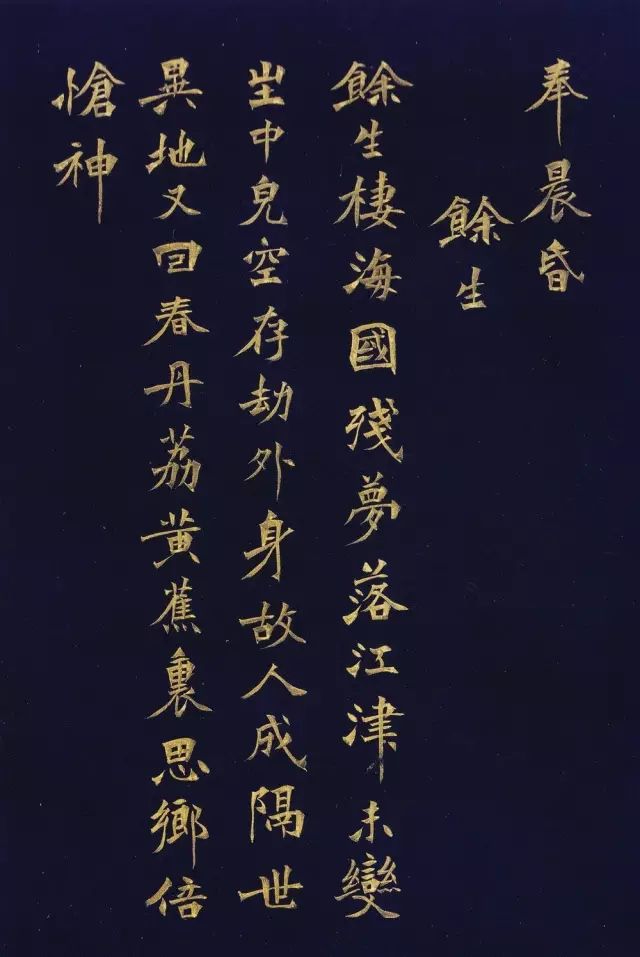 奉晨昏
餘生
餘生棲海國殘夢落江津未變
中皃空存劫外身故人成隔世
異地又回春丹荔黃蕉裏思鄉倍
愴神